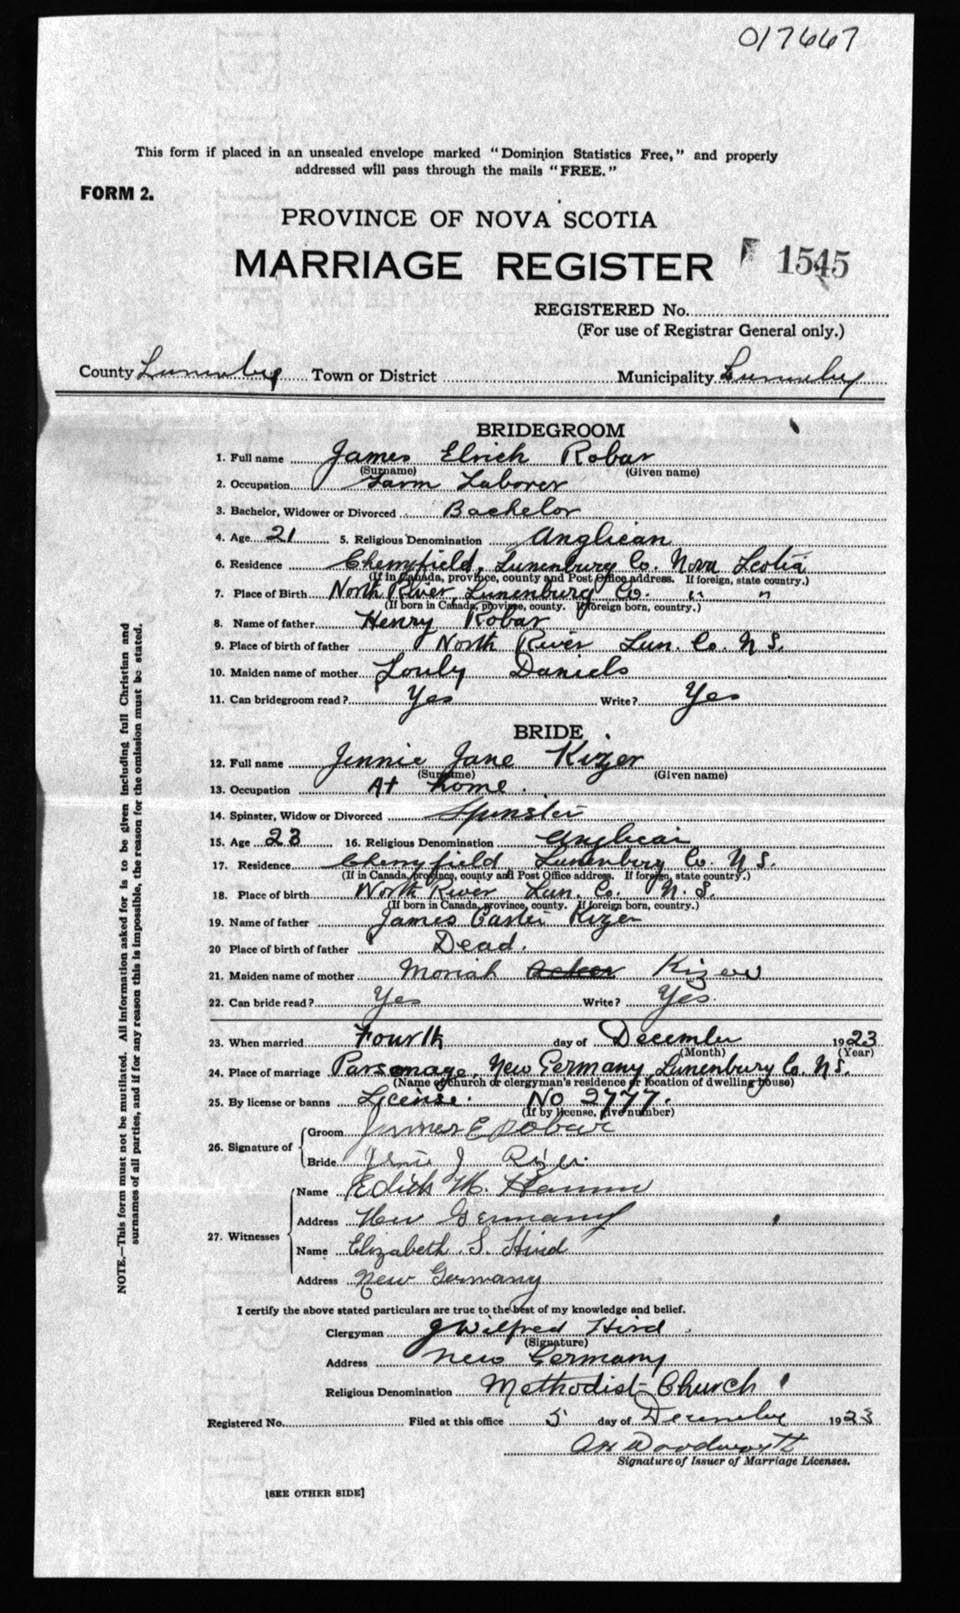 017667
This form if placed in an unsealed envelope marked "Dominion Statistics Free," and properly
addressed will pass through the mails "FREE."
FORM 2.
PROVINCE OF NOVA SCOTIA
MARRIAGE REGISTER 1545
REGISTERED No.
(For use of Registrar General only.)
County Lunenburg Town or District Municipality Lunenburg
BRIDEGROOM
1. Full name James Elrick Robar
(Surname) (Given name)
2. Occupation Farm Laborer
3. Bachelor, Widower or Divorced Bachelor
4. Age 21 5. Religious Denomination Anglican
6. Residence Cherryfield, Lunenburg Co. Nova Scotia
(If in Canada, province, county and Post Office address. If foreign, state country.)
7. Place of Birth North River, Lunenburg Co. " "
(If born in Canada, province, county. If foreign born, country.)
8. Name of father Henry Robar
9. Place of birth of father North River Lun. Co. N S.
10. Maiden name of mother Louly Daniels
11. Can bridegroom read? Yes Write? Yes
BRIDE
12. Full name Jennie Jane Kizer
(Surname) (Given name)
13. Occupation At home.
14. Spinster, Widow or Divorced Spinster
15. Age 23 16. Religious Denomination Anglican
17. Residence Cherryfield Lunenburg Co. N S.
(If in Canada, province, county and Post Office address. If foreign, state country.)
18. Place of birth North River Lun. Co. N. S.
(If born in Canada, province, county. If foreign born, country.)
19. Name of father James Caster Kizer
20 Place of birth of father Dead.
21. Maiden name of mother Moriah Acker Kizer
22. Can bride read? Yes Write? Yes.
23. When married Fourth day of December 1923
(Month) (Year)
24. Place of marriage Parsonage, New Germany, Lunenburg Co. N S.
(Name of church or clergyman's residence or location of dwelling house)
25. By license or banns License. No 2777.
(If by license, give number)
26. Signature of Groom James E Robar
Bride Jenie J Kizer
27. Witnesses Name Edith M. Hamm
Address New Germany
Name Elizabeth S. Hird
Address New Germany
I certify the above stated particulars are true to the best of my knowledge and belief.
Clergyman J Wilfred Hird.
(Signature)
Address New Germany
Religious Denomination Methodist Church
Registered No. Filed at this office 5 day of December 1923
Woodworth
Signature of Issuer of Marriage Licenses.
[SEE OTHER SIDE]
NOTE.—This form must not be mutilated. All information asked for is to be given including full Christian and
surnames of all parties, and if for any reason this is impossible, the reason for the omission must be stated.